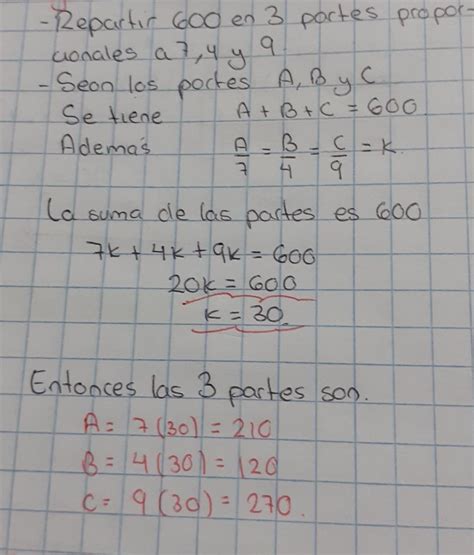 -Repartir 600 en 3 partes propor-
cionales a 7, 4 y 9
- Sean las partes A, B y C
Se tiene A + B + C = 600
Además A/7 = B/4 = C/9 = K.
La suma de las partes es 600
7k + 4k + 9k = 600
20k = 600
k = 30.
Entonces las 3 partes son.
A = 7(30) = 210
B = 4(30) = 120
C = 9(30) = 270.